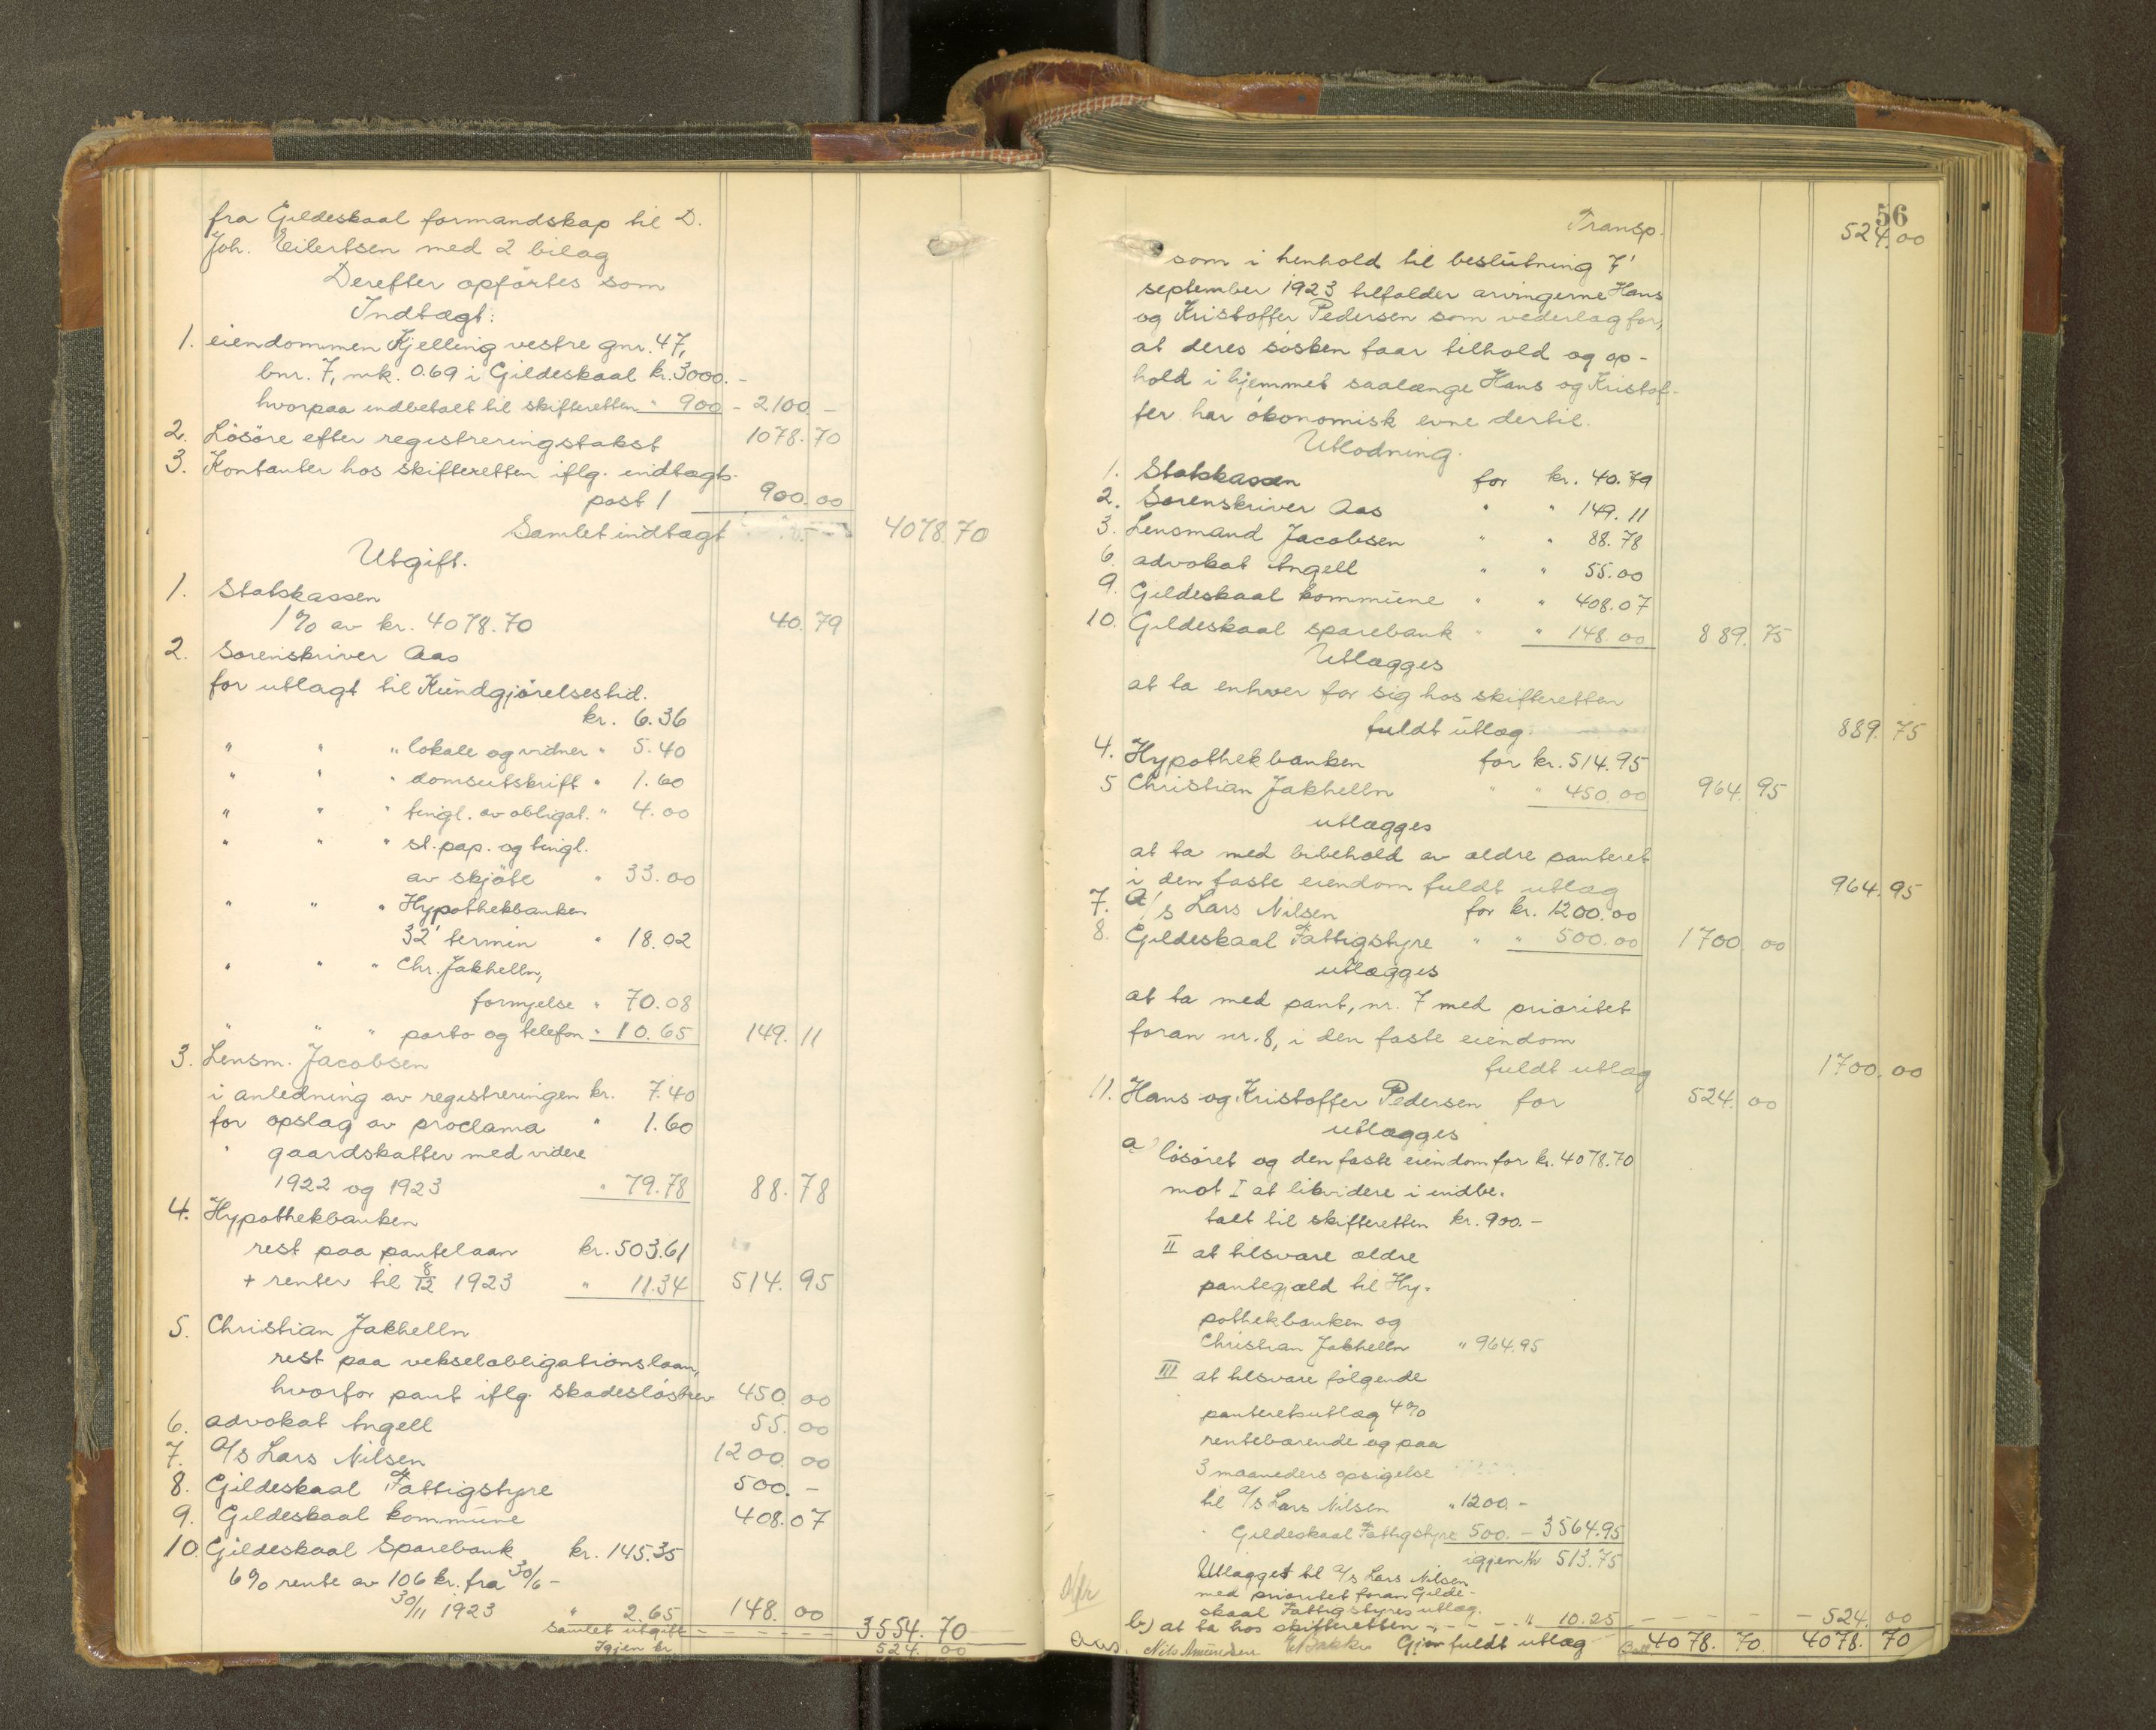 fra Gildeskaal formandskap til D.
Joh. Eilertsen med 2 bilag
Derefter opførtes som
Indtægt:
1. eiendommen Kjelling vestre gnr. 47,
bnr. 7, mk. 0.69 i Gildeskaal kr. 3000. -
hvorpaa indbetalt til skifteretten " 900 - 2100 -
2. Løsøre efter registreringstakst 1078.70
3. Kontanter hos skifteretten iflg. indtægts-
post 1 900.00
Samlet indtægt 4078.70
Utgift.
1. Statskassen
1% av kr. 4078.70 40.79
2. Sorenskriver Aas
for utlagt til Kundgjørelsestid.
kr. 6.36
" " " lokale og vidner " 5.40
" " " domsutskrift " 1.60
" " " tingl. av obligat. " 4.00
" " " st. pap. og tingl.
av skjøte " 33.00
" " " Hypothekbanken
32' termin " 18.02
" " " Chr. Jakhelln,
fornyelse " 70.08
" " " porto og telefon " 10.65 149.11
3. Lensm. Jacobsen
i anledning av registreringen kr. 7.40
for opslag av proclama " 1.60
" gaardskatter med videre
1922 og 1923 " 79.78 88.78
4. Hypothekbanken
rest paa pantelaan kr. 503.61
+ renter til 8/12 1923 " 11.34 514.95
5. Christian Jakhelln
rest paa vekselobligationslaan,
hvorfor pant iflg. skadesløsbrev 450.00
6. advokat Angell 55.00
7. A/s Lars Nilsen 1200.00
8. Gildeskaal Fattigstyre 500. -
9. Gildeskaal kommune 408.07
10. Gildeskaal Sparebank kr. 145.35
6% rente av 106 kr. fra 30/6 -
30/11 1923 " 2.65 148.00
Samlet utgift - - - - - 3554.70
Igjen kr. 524.00
56
Transp. 524.00
som i henhold til beslutning 7'
september 1923 tilfalder arvingerne Hans
og Kristoffer Pedersen som vederlag for,
at deres søsken faar tilhold og op-
hold i hjemmet saalænge Hans og Kristof-
fer har økonomisk evne dertil.
Utlodning.
1. Statskassen for kr. 40.79
2. Sorenskriver Aas " " 149.11
3. Lensmand Jacobsen " " 88.78
6. advokat Angell " " 55.00
9. Gildeskaal kommune " " 408.07
10. Gildeskaal sparebank " " 148.00 889.75
Utlægges
at ta enhver for sig hos skifteretten
fuldt utlæg 889.75
4. Hypothekbanken for kr. 514.95
5 Christian Jakhelln " " 450.00 964.95
utlægges
at ta med bibehold av ældre panteret
i den faste eiendom fuldt utlæg 964.95
7. A/s Lars Nilsen for kr. 1200.00
8. Gildeskaal Fattigstyre " " 500.00 1700.00
utlægges
at ta med pant, nr. 7 med prioritet
foran nr. 8, i den faste eiendom
fuldt utlæg 1700.00
11. Hans og Kristoffer Pedersen for 524.00
utlægges
a løsøret og den faste eiendom for kr. 4078.70
mot I at likvidere i indbe-
talt til skifteretten kr. 900. -
II at tilsvare ældre
pantegjæld til Hy-
pothekbanken og
Christian Jakhelln " 964.95
III at tilsvare følgende
panteretsutlæg 4%
rentebærende og paa
3 maaneders opsigelse
til A/s Lars Nilsen " 1200. -
" Gildeskaal Fattigstyre 500. - 3564.95
igjen kr 513.75
Utlægget til A/s Lars Nilsen
med prioritet foran Gilde-
skaal Fattigstyres utlæg.
b.) at ta hos skifteretten - - - " 10.25 - - - - - 524.00
Aas. Nils Amundsen Bakke Gjør fuldt utlæg Ball. 4078.70 4078.70